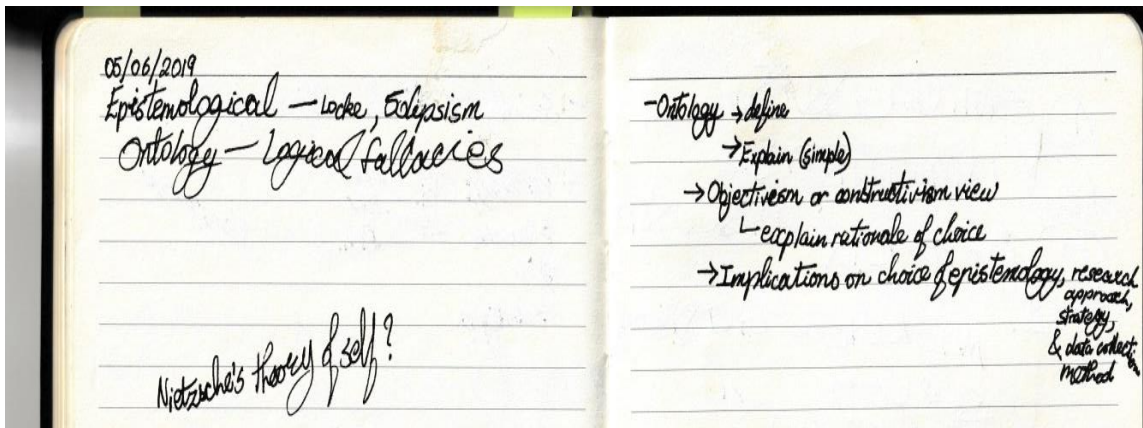 05/06/2019
Epistemological — Locke, Solipsism
Ontology — Logical fallacies
Nietzsche's theory of self?
- Ontology → define
→ Explain (simple)
→ Objectivism or constructivism view
└ explain rationale of choice
→ Implications on choice of epistemology, research
approach,
strategy,
& data collection
method